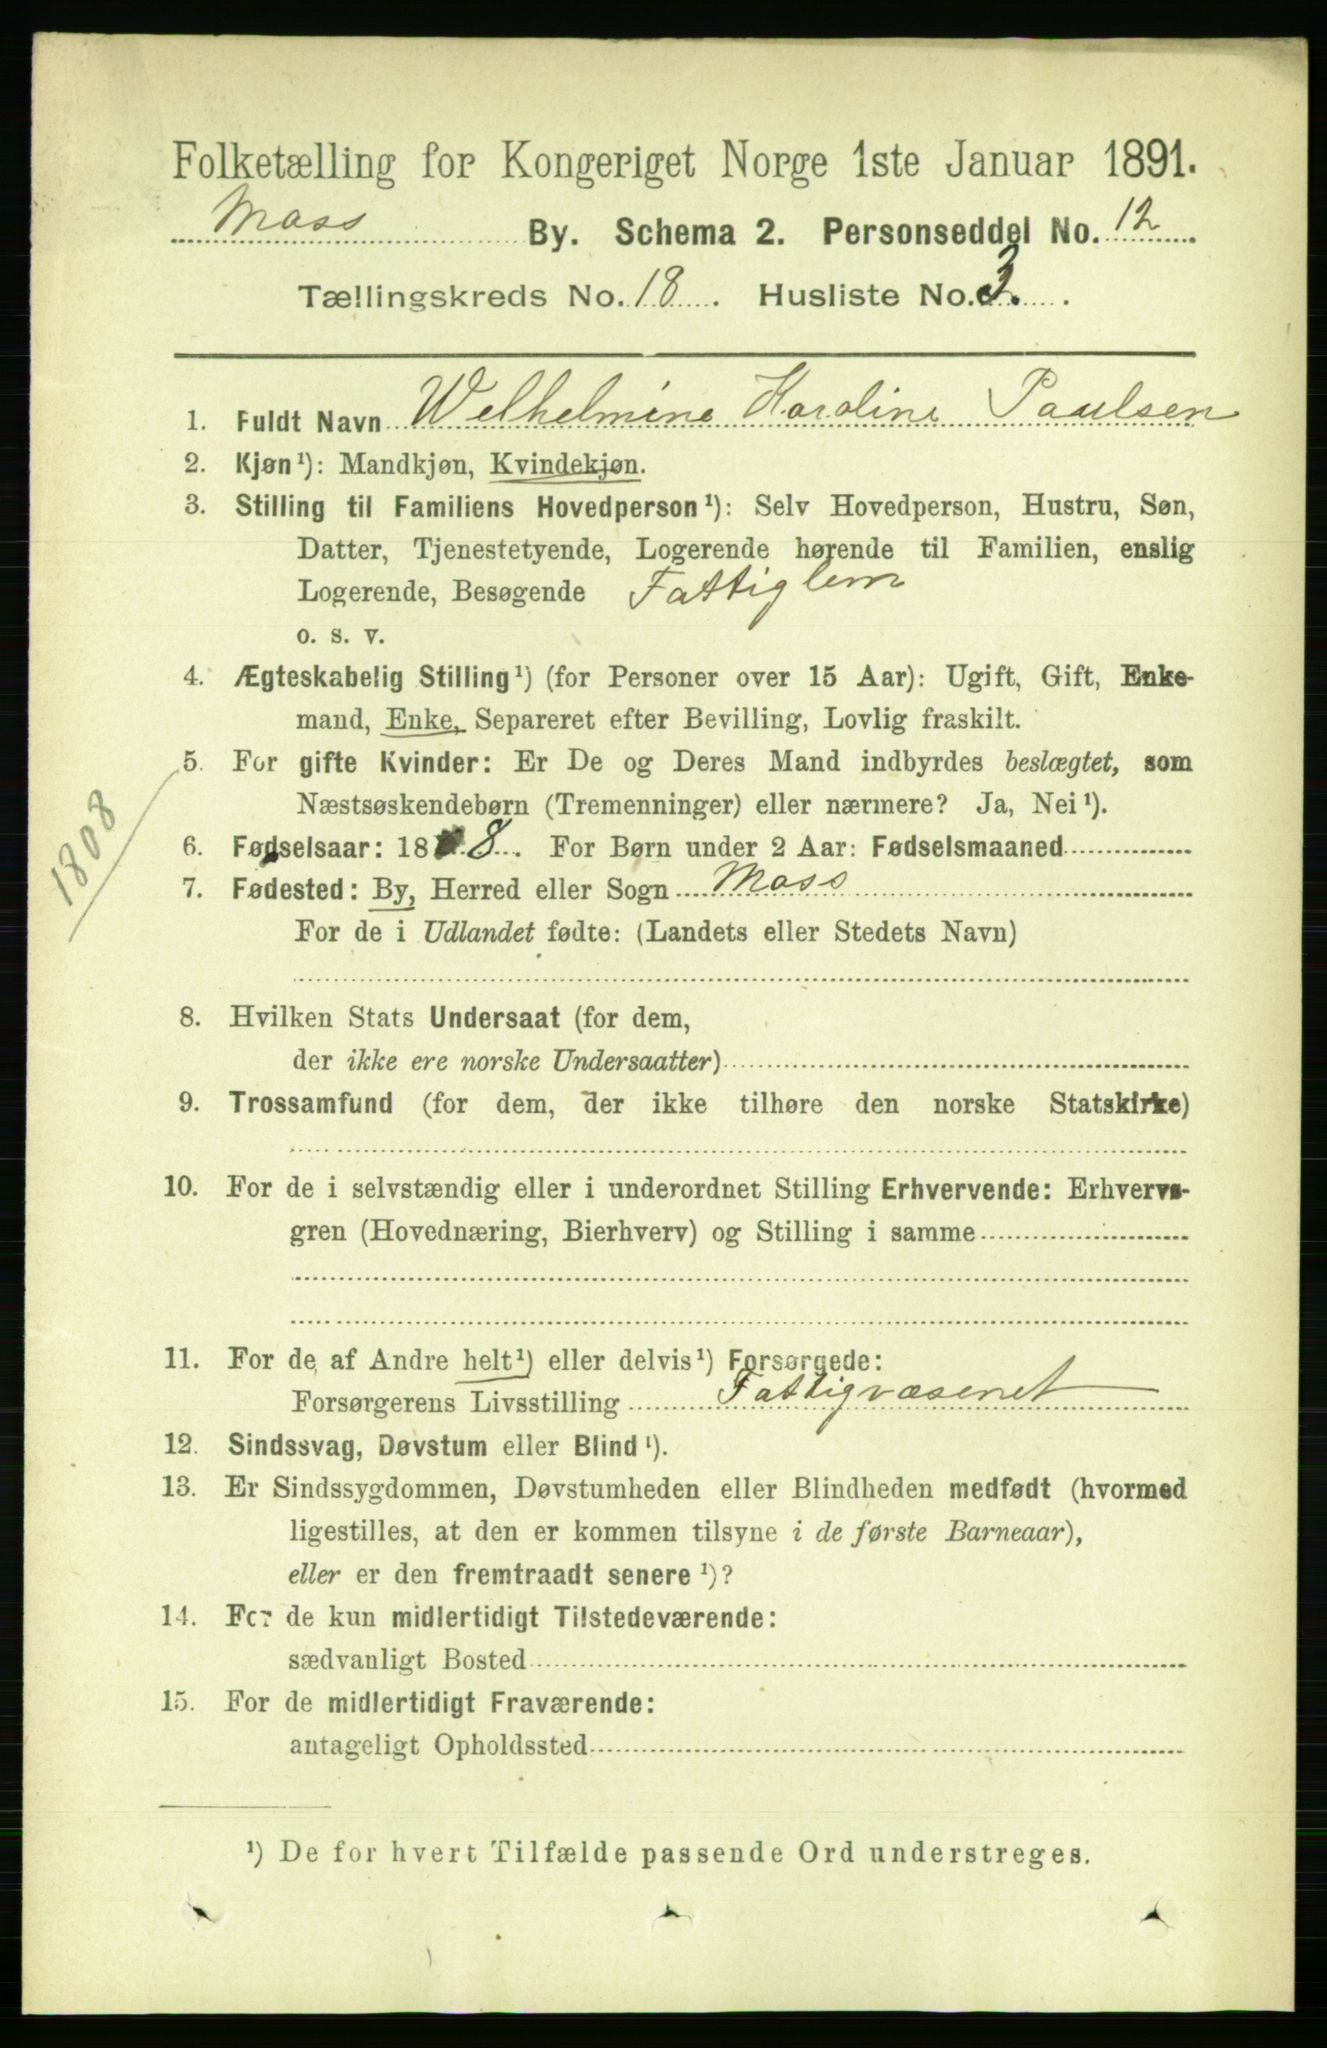 Folketælling for Kongeriget Norge 1ste Januar 1891.
Moss By. Schema 2. Personseddel No. 12
Tællingskreds No. 18. Husliste No. 3.
1. Fuldt Navn Welhelmine Karoline Paulsen
2. Kjøn¹): Mandkjøn, Kvindekjøn.
3. Stilling til Familiens Hovedperson¹): Selv Hovedperson, Hustru, Søn,
Datter, Tjenestetyende, Logerende hørende til Familien, enslig
Logerende, Besøgende Fattiglem
o. s. v.
4. Ægteskabelig Stilling¹) (for Personer over 15 Aar): Ugift, Gift, Enke-
mand, Enke, Separeret efter Bevilling, Lovlig fraskilt.
5. For gifte Kvinder: Er De og Deres Mand indbyrdes beslægtet, som
Næstsøskendebørn (Tremenninger) eller nærmere? Ja, Nei¹).
1808
6. Fødselsaar: 1808. For Børn under 2 Aar: Fødselsmaaned
7. Fødested: By, Herred eller Sogn Moss
For de i Udlandet fødte: (Landets eller Stedets Navn)
8. Hvilken Stats Undersaat (for dem,
der ikke ere norske Undersaatter)
9. Trossamfund (for dem, der ikke tilhøre den norske Statskirke)
10. For de i selvstændig eller i underordnet Stilling Erhvervende: Erhvervs-
gren (Hovednæring, Bierhverv) og Stilling i samme
11. For de af Andre helt¹) eller delvis¹) Forsørgede:
Forsørgerens Livsstilling Fattigvæsenet
12. Sindssvag, Døvstum eller Blind¹).
13. Er Sindssygdommen, Døvstumheden eller Blindheden medfødt (hvormed
ligestilles, at den er kommen tilsyne i de første Barneaar),
eller er den fremtraadt senere¹)?
14. For de kun midlertidigt Tilstedeværende:
sædvanligt Bosted
15. For de midlertidigt Fraværende:
antageligt Opholdssted
¹) De for hvert Tilfælde passende Ord understreges.